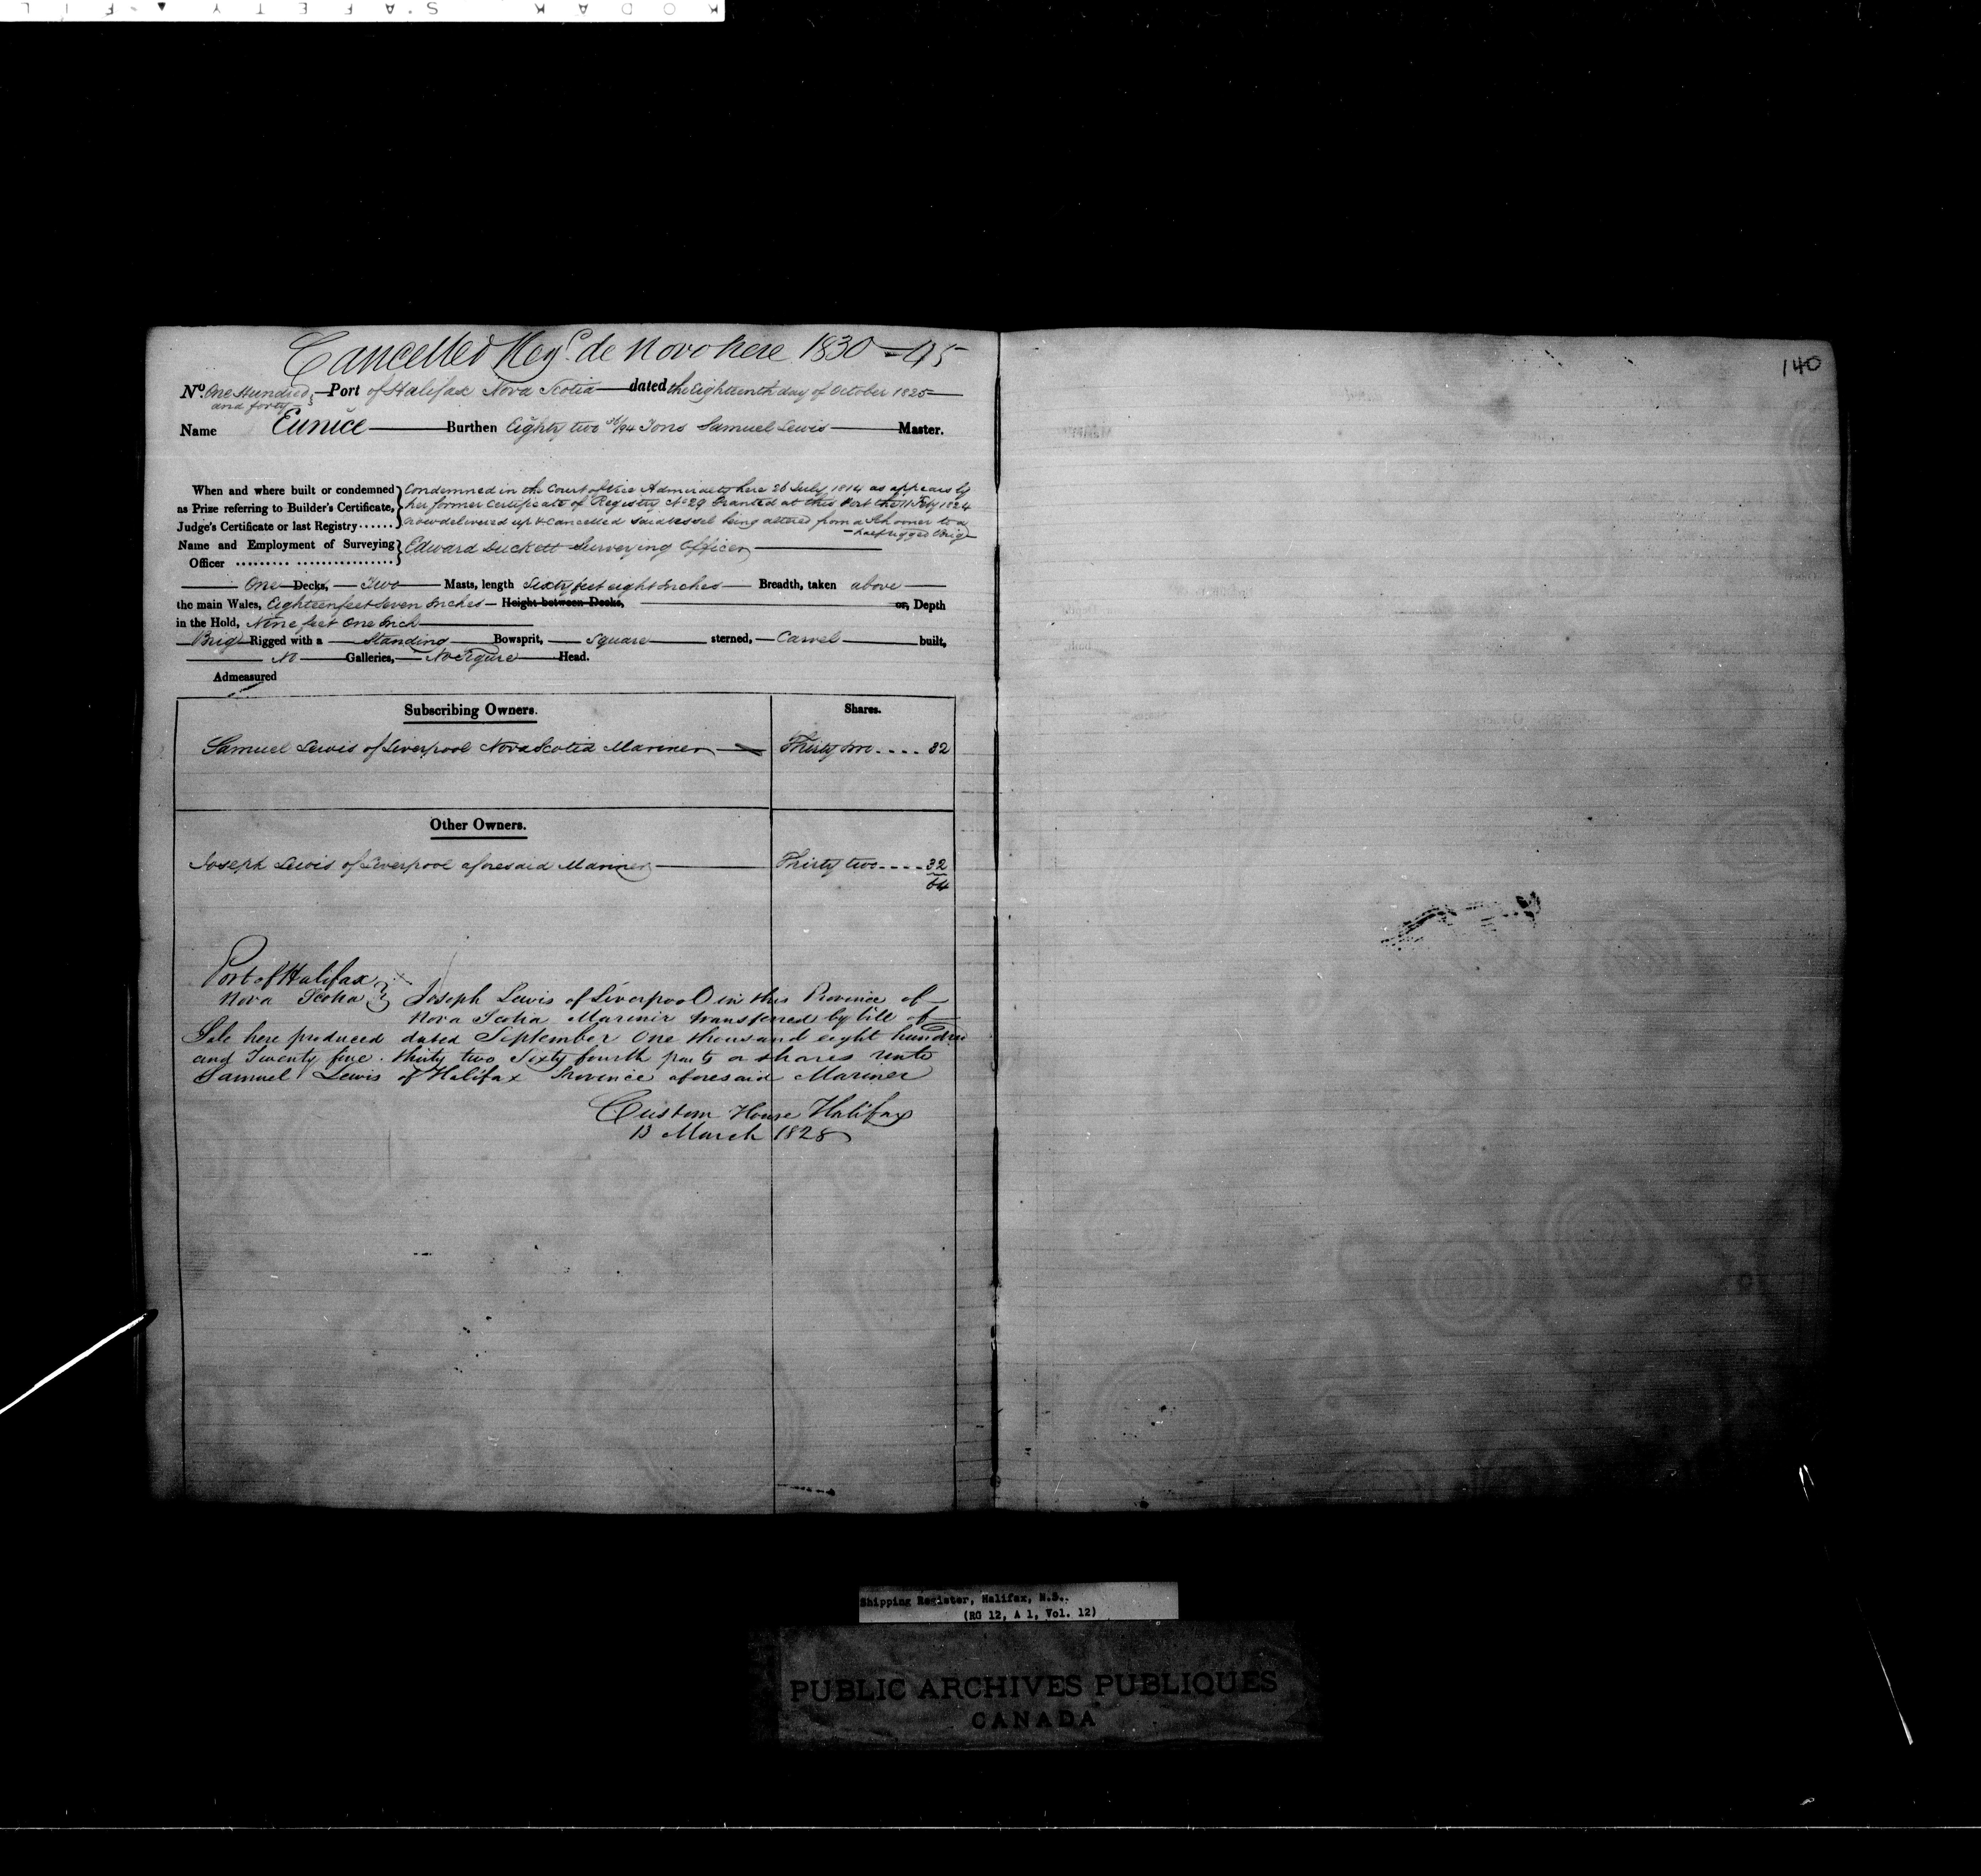 KODAK SAFETY FIL
Cancelled Regd. de Novo here 1830 – 95
140
No. One Hundred and forty Port of Halifax Nova Scotia dated the Eighteenth day of October 1825
Name Eunice Burthen Eighty two /94 Tons Samuel Lewis Master.
When and where built or condemned } Condemned in the Court of Vice Admiralty here 26 July 1814 as appears by
as Prize referring to Builder's Certificate, } her former Certificate of Registry No 29 Granted at this Port the 11 Feby 1824
Judge's Certificate or last Registry...... } now delivered up & Cancelled said vessel being altered from a Schooner to a
half rigged Brig
Name and Employment of Surveying } Edward Duckett Surveying Officer
Officer ......... ................
One Decks, Two Masts, length Sixty feet eight Inches Breadth, taken above
the main Wales, Eighteen feet Seven Inches Height between Decks, or, Depth
in the Hold, Nine feet One Inch
Brig Rigged with a Standing Bowsprit, Square sterned, Carvel built,
No Galleries, No Figure Head.
Admeasured
Subscribing Owners. Shares.
Samuel Lewis of Liverpool Nova Scotia Mariner Thirty two .... 32
Other Owners.
Joseph Lewis of Liverpool aforesaid Mariner Thirty two .... 32
64
Port of Halifax
Nova Scotia } Joseph Lewis of Liverpool in this Province of
Nova Scotia Marinir transferred by bill of
Sale here produced dated September One thousand eight hundred
and Twenty five . thirty two Sixty fourth parts or shares unto
Samuel Lewis of Halifax Province aforesaid Mariner
Custom House Halifax
13 March 1828
Shipping Register, Halifax, N.S..
(RG 12, A 1, Vol. 12)
PUBLIC ARCHIVES PUBLIQUES
CANADA